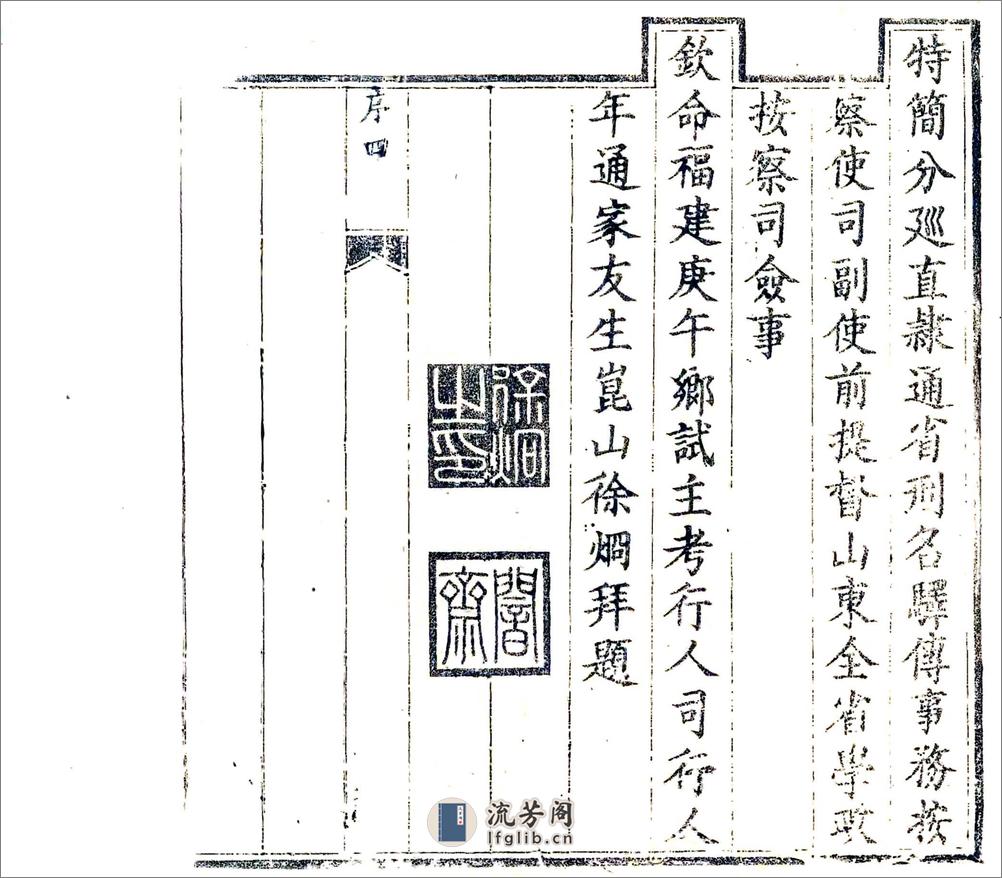 特簡分廵直隸通省刑名驛傳事務按
察使司副使前提督山東全省學政
按察司僉事
欽命福建庚午鄉試主考行人司行人
年通家友生崑山徐炯拜題
徐炯之印
序四
流芳阁
lfglib.cn